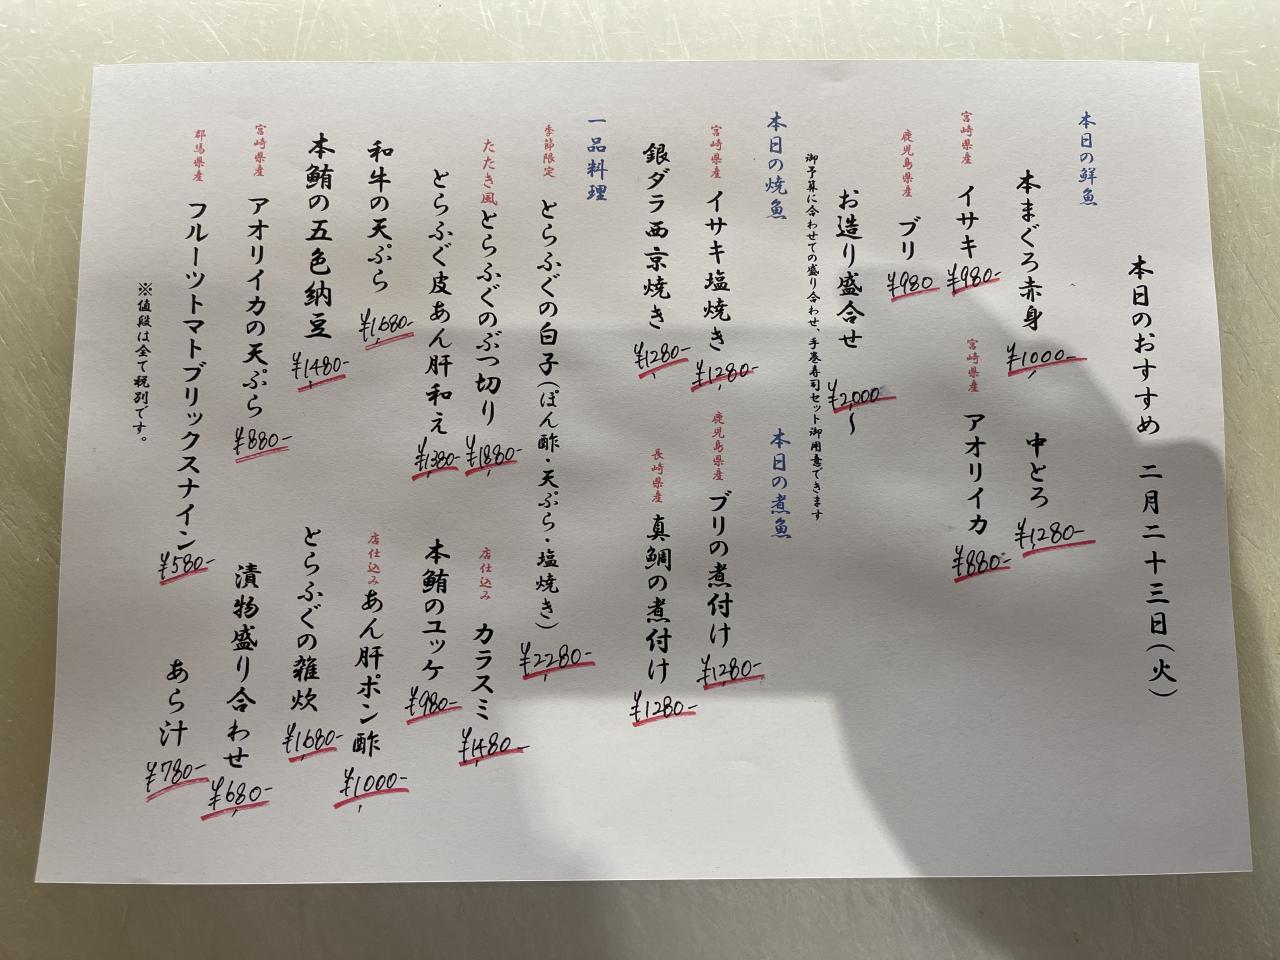 本日のおすすめ 二月二十三日(火)
本日の鮮魚
本まぐろ赤身 ¥1,000- 中とろ ¥1,280-
宮崎県産 イサキ ¥980- 宮崎県産 アオリイカ ¥880-
鹿児島県産 ブリ ¥980
お造り盛合せ ¥2,000〜
御予算に合わせての盛り合わせ、手巻寿司セット御用意できます
本日の焼魚 本日の煮魚
宮崎県産 イサキ塩焼き ¥1,280- 鹿児島県産 ブリの煮付け ¥1,280-
銀ダラ西京焼き ¥1,280- 長崎県産 真鯛の煮付け ¥1,280-
一品料理
季節限定 とらふぐの白子(ぽん酢・天ぷら・塩焼き) ¥2,280-
たたき風 とらふぐのぶつ切り ¥1,880- 店仕込み カラスミ ¥1,480-
とらふぐ皮あん肝和え ¥1,380- 本鮪のユッケ ¥980-
和牛の天ぷら ¥1,680- 店仕込み あん肝ポン酢 ¥1,000-
本鮪の五色納豆 ¥1,480- とらふぐの雑炊 ¥1,680-
宮崎県産 アオリイカの天ぷら ¥880- 漬物盛り合わせ ¥680-
郡馬県産 フルーツトマトブリックスナイン ¥580- あら汁 ¥780-
※値段は全て税別です。